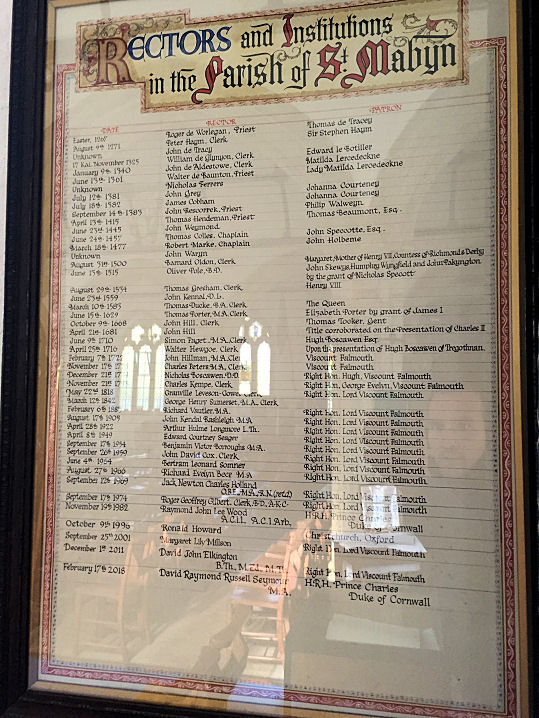 RECTORS and Institutions
in the Parish of St. Mabyn
DATE RECTOR PATRON
Easter, 1267 Roger de Worlegan, Priest Thomas de Tracey
August 9th 1271 Peter Haym, Clerk Sir Stephen Haym
Unknown John de Tracy
17 Kal. November 1325 William de Glynyon, Clerk Edward le Botiller
January 9th 1340 John de Aldestowe, Clerk Matilda Lercedeckne
June 13th 1361 Walter de Baunton, Priest Lady Matilda Lercedeckne
Unknown Nicholas Ferrers
July 12th 1381 John Grey Johanna Courteney
July 18th 1382 James Cobham Johanna Courteney
September 14th 1383 John Rescorrek, Priest Philip Walweyn
April 13th 1415 Thomas Hendeman, Priest Thomas Beaumont, Esq.
June 23rd 1445 John Weymond
June 24th 1457 Thomas Colles, Chaplain John Speccotte, Esq.
March 18th 1477 Robert Marke, Chaplain John Holbeme
Unknown John Waryn
August 31st 1500 Barnard Oldon, Clerk Margaret, Mother of Henry VII, Countess of Richmond & Derby
June 13th 1515 Oliver Pole, B.D. John Skewys, Humphry Wingfield and John Pakyngton,
by the grant of Nicholas Specott
August 29th 1534 Thomas Gresham, Clerk Henry VIII
June 23rd 1559 John Kennal, D.L.
March 10th 1583 Thomas Ducke, B.A. Clerk The Queen
June 15th 1629 Thomas Porter, M.A. Clerk Elizabeth Porter by grant of James I
October 9th 1668 John Hill, Clerk Thomas Tooker, Gent
April 21st 1681 John Hill Title corroborated on the Presentation of Charles II
June 9th 1710 Simon Paget, M.A. Clerk Hugh Boscawen Esq
April 25th 1716 Walter Hewgoe, Clerk Upon the presentation of Hugh Boscawen of Tregothnan.
February 7th John Hillman, M.A. Viscount Falmouth
November 17th Charles Peters, M.A. Clerk Viscount Falmouth
December 21st Nicholas Boscawen, D.D. Right Hon. Hugh, Viscount Falmouth
November 21st Charles Kempe, Clerk Right Hon, George Evelyn, Viscount Falmouth
May 22nd 1818 Granville Leveson-Gower, Clerk Right Hon. Lord Viscount Falmouth
March 12th 1842 George Henry Somerset, M.A. Clerk
February 6th Richard Vautier, M.A. Right Hon. Lord Viscount Falmouth
August 17th 1903 John Kendal Rashleigh M.A. Right Hon. Lord Viscount Falmouth
April 28th 1922 Arthur Hulme Longmore L.Th. Right Hon. Lord Viscount Falmouth
April 8th 1949 Edward Courtney Sesger Right Hon. Lord Viscount Falmouth
September 17th 1954 Benjamin Victor Burroughs M.A. Right Hon. Lord Viscount Falmouth
September 26th 1959 John David Cox, Clerk Right Hon. Lord Viscount Falmouth
June 4th 1964 Bertram Leonard Somner Right Hon. Lord Viscount Falmouth
August 27th 1966 Richard Evelyn Beer M.A. Right Hon. Lord Viscount Falmouth
September 12th 1969 Jack Newton Charles Holland
O.B.E., M.A., R.N. (retd) Right Hon. Lord Viscount Falmouth
September 17th 1974 Roger Geoffrey Gilbert, Clerk, B.D., A.K.C. Right Hon. Lord Viscount Falmouth
November 19th 1982 Raymond John Lee Wood H.R.H. Prince Charles
A.C.I.I. A.C.I.Arb. Duke of Cornwall
October 9th 1996 Ronald Howard Christchurch, Oxford
September 25th 2001 Margaret Lily Millson Right Hon. Lord Viscount Falmouth
December 1st 2011 David John Elkington
B.Th., M.Ed., M.Th. Right Hon. Lord Viscount Falmouth
February 17th 2018 David Raymond Russell Seymour H.R.H. Prince Charles
M.A. Duke of Cornwall